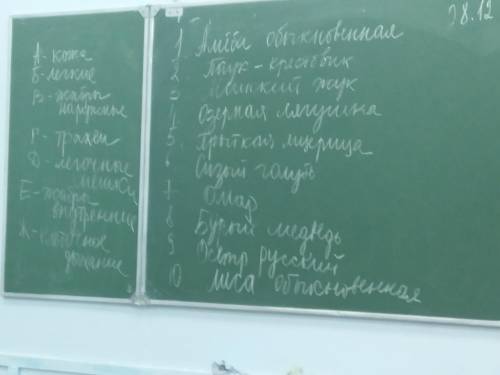 А - кожа
Б - легкие
В - жабры
наружные
Г - трахеи
Д - легочные
мешки
Е - жабры
внутренние
Ж - клеточное
дыхание
28.12
1 Амёба обыкновенная
2 Паук - крестовик
3 Майский жук
4 Озерная лягушка
5. Прыткая ящерица
6 Сизый голубь
7 Омар
8 Бурый медведь
9 Осетр русский
10 Лиса обыкновенная